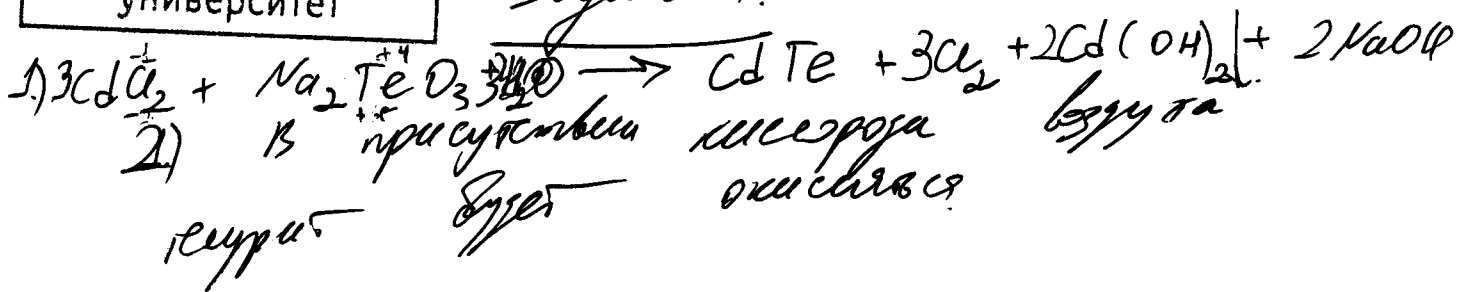 университет
1.) 3CdCl₂ + Na₂TeO₃ + 3H₂O → CdTe + 3Cl₂ + 2Cd(OH)₂↓ + 2NaOH
2.) В присутствии кислорода воздуха
теллурит будет окисляться